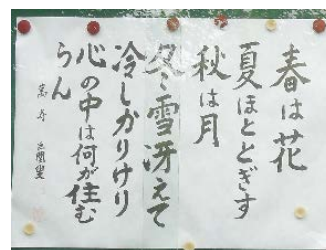 春は花
夏ほととぎす
秋は月
冬雪冴えて
冷しかりけり
心の中は何が住む
らん